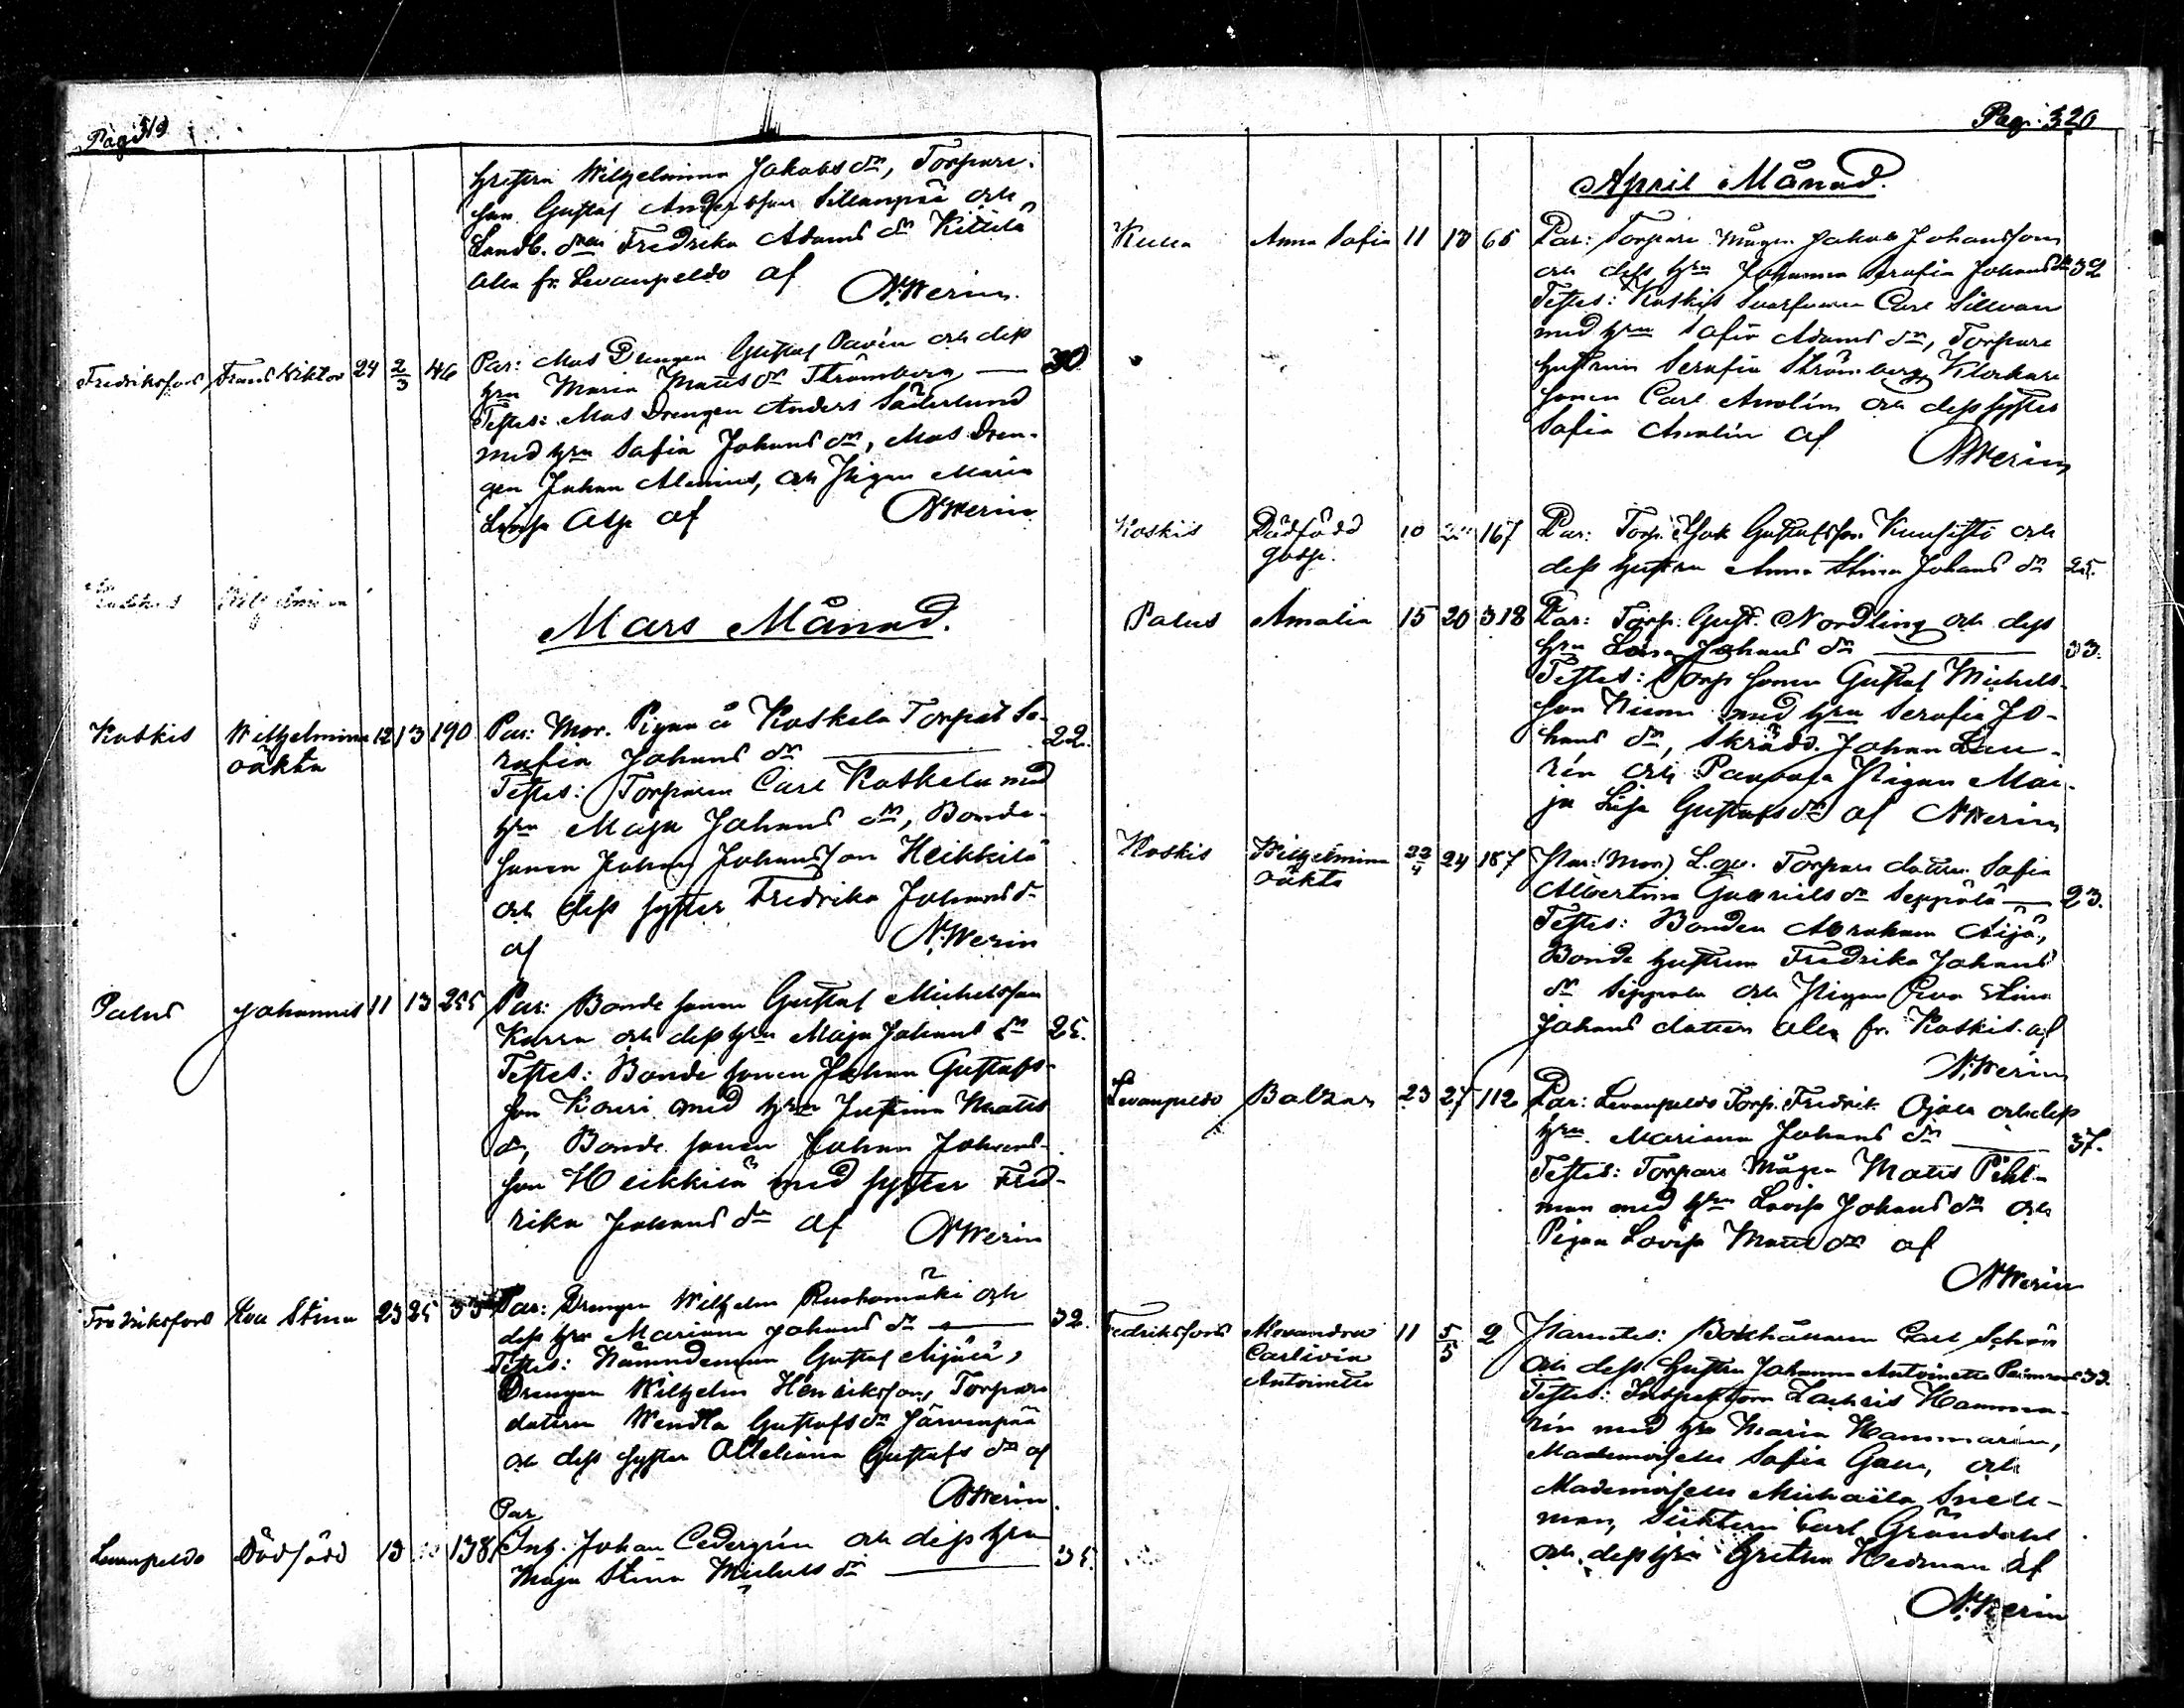 Pag 319
hustru Wilhelmina Jakobs dr, Torpare
son Gustaf Andersson Sillanpää och
Landb. dren Fredrika Adams dr Kittilä
alla fr. Levanpeldo af
N. Werin.
Fredriksfors Frans Viktor 24 2/3 46 Par: Mas Drengen Gustaf Pavén och dess
hru Maria Matts dr Strömberg — 30
Testes: Mas Drengen Anders Söderlund
med hru Safia Johans dr, Mas Dren-
gen Johan Alenius, och Pigan Maria
Lovisa Alp af N Werin
Mars Månad.
Koskis Wilhelmina 12 13 190 Par: Mor. Pigan å Koskela Torpet Se- 22.
oäkta rafia Johans dr —
Testes: Torparen Carl Koskela med
hru Maja Johans dr, Bonde-
sonen Johan Johansson Heikkilä
och dess syster Fredrika Johans dr
af N. Werin
Palus Johannes 11 13 255 Par: Bonde sonen Gustaf Michelsson
Karra och dess hru Maja Johans dr 25.
Testes: Bonde sonen Johan Gustafs-
son Kouri med hru Justina Matts
dr, Bonde sonen Johan Johans-
son Heikkilä med syster Fred-
rika Johans dr af N Werin
Fredriksfors Eva Stina 23 25 33 Par: Drengen Wilhelm Ruohomäki och
dess hru Mariana Johans dr — 32.
Testes: Nämndeman Gustaf Äijälä,
Drengen Wilhelm Henriksson, Torpare
dottren Wendla Gustafs dr Järvenpää
och dess syster Olleliana Gustafs dr af
N Werin.
Par
Levanpeldo Dödfödd 13 138 Inh. Johan Cedergrén och dess hru
Maja Stina Michels dr — 35.
Pag. 320
April Månad.
Kulla Anna Safia 11 13 65 Par: Torpare Mågen Jakob Johansson
och dess hru Johanna Serafia Johans dr 32
Testes: Koskis Svarfvaren Carl Sillvan
med hru Safia Adams dr, Torpare
hustrun Serafia Strömberg, Klockare
sonen Carl Amalén och dess syster
Safia Amalén af
N Werin
Koskis Dödfödd 10 167 Par: Torp. Isak Gustafsson Kuusisto och
gosse. dess hustru Anna Stina Johans dr 25.
Palus Amalia 15 20 318 Par: Torp: Gust. Nordling och dess
hru Lovisa Johans dr — 33.
Testes: Torp sonen Gustaf Michels-
son Niemi med hru Serafia Jo-
hans dr, Skrädd. Johan Lau-
rén och Pigan Mai-
ja Lisa Gustafs dr af N Werin
Koskis Wilhelmina 22/4 24 187 Par: (Mor) L. qv. Torpare dottren Safia
oäkta Albertina Gabriels dr Seppälä — 23.
Testes: Bonden Abraham Äijä,
Bonde hustrun Fredrika Johans
dr Seppälä och Pigan Eva Stina
Johans dotter alla fr. Koskis af
N. Werin
Levanpeldo Baltzar 23 27 112 Par: Levanpeldo Torp. Fredrik Ojala och dess
hru Mariana Johans dr — 37.
Testes: Torpare Mågen Matts Pihl-
man med hru Lovisa Johans dr och
Pigan Lovisa Matts dr af
N Werin
Fredriksfors Alexandra 11 5/5 2 Parentes: Bokhållaren Carl Schön
Carlivia och dess hustru Johanna Antoinetta 33.
Antoinetta Testes: Inspektoren Zachris Hamma-
rén med hru Maria Hammarén,
Mademoiselle Safia Gall, och
Mademoiselle Michaila Snell-
man, Carl Gröndahl
och dess hru Gretha Hedman af
N. Werin